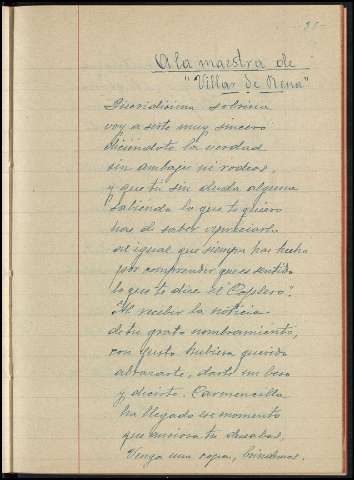 31-
A la maestra de
"Villar de Rena"
Queridisima sobrina
voy a serte muy sincero
diciéndote la verdad
sin ambajes ni rodeos,
y que tú sin duda alguna
sabiendo lo que te quiero
has de saber apreciarlo
al igual que siempre has hecho
por comprender que es sentido
lo que te dice el "Coplero".
Al recibir la noticia
de tu grato nombramiento,
con gusto hubiera querido
abrazarte, darte un beso
y decirte. Carmencilla
ha llegado ese momento
que ansiosa tu deseabas,
Venga una copa, brindemos.